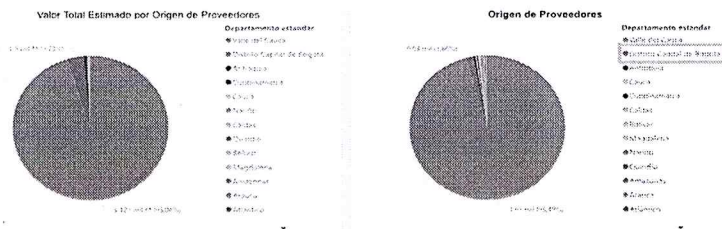 Valor Total Estimado por Origen de Proveedores
Departamento estandar
Valle del Cauca
Distrito Capital de Bogota
Antioquia
Cundinamarca
Cauca
Nariño
Caldas
Quindio
Bolivar
Magdalena
Amazonas
Arauca
Atlantico
Origen de Proveedores
Departamento estandar
Valle del Cauca
Distrito Capital de Bogota
Antioquia
Cauca
Cundinamarca
Caldas
Bolivar
Magdalena
Nariño
Quindio
Amazonas
Arauca
Atlantico